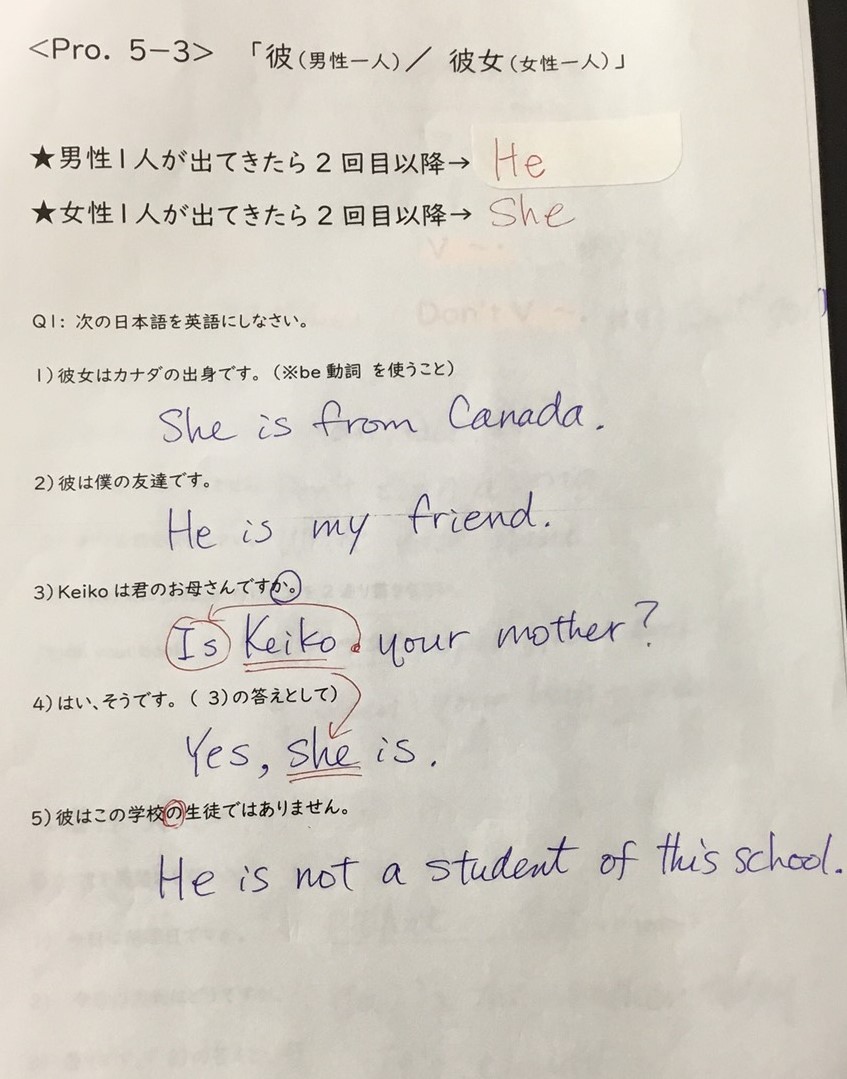 <Pro. 5−3> 「彼(男性一人)／ 彼女(女性一人)」
★男性1人が出てきたら2回目以降→ He
★女性1人が出てきたら2回目以降→ She
Q1: 次の日本語を英語にしなさい。
1)彼女はカナダの出身です。(※be動詞 を使うこと)
She is from Canada.
2)彼は僕の友達です。
He is my friend.
3)Keikoは君のお母さんですか。
Is Keiko your mother?
4)はい、そうです。( 3)の答えとして)
Yes, she is.
5)彼はこの学校の生徒ではありません。
He is not a student of this school.